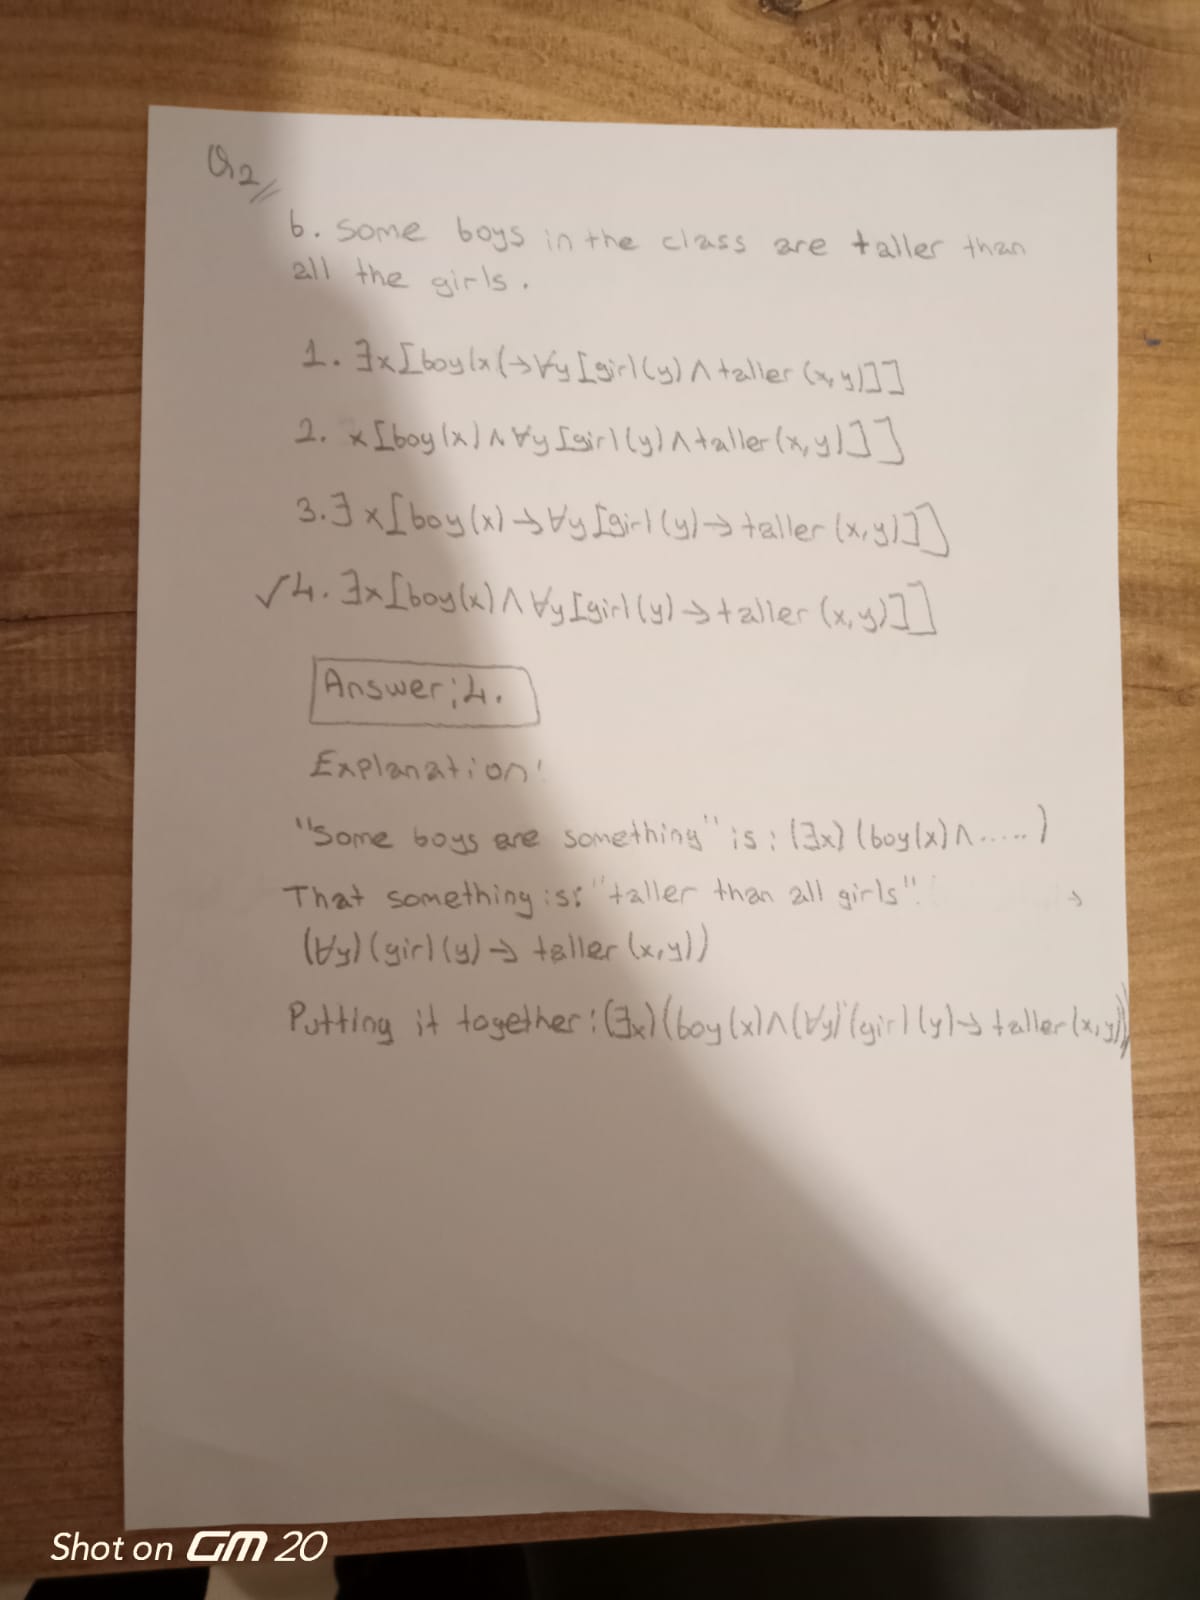 Q2//
b. Some boys in the class are taller than
all the girls.
1. ∃x[boy(x(→∀y[girl(y)∧taller(x,y)]]
2. x[boy(x)∧∀y[girl(y)∧taller(x,y)]]
3.∃x[boy(x)→∀y[girl(y)→taller(x,y)]]
✓4. ∃x[boy(x)∧∀y[girl(y)→taller(x,y)]]
Answer;4.
Explanation:
"Some boys are something" is: (∃x)(boy(x)∧.....)
That something is: "taller than all girls". →
(∀y)(girl(y)→taller(x,y))
Putting it together:(∃x)(boy(x)∧(∀y)(girl(y)→taller(x,y))
Shot on GM 20